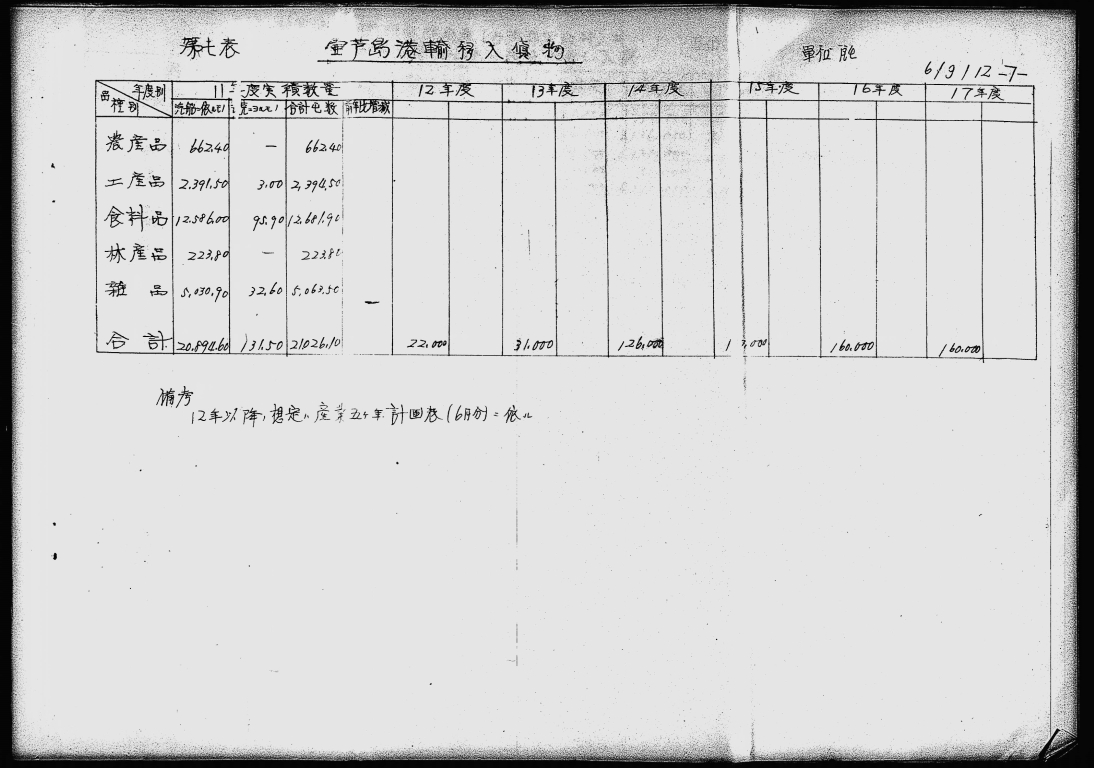 第七表 壷芦島港輸移入貨物 單位瓲
6/9/12-7-
年度別 11年度実積数量 12年度 13年度 14年度 15年度 16年度 17年度
品種別 汽船ニ依ルモノ 合計屯数 前年比増減
農産品 662.40 — 662.40
工産品 2,391.50 3.00 2,394.50
食料品 12,586.00 95.90 12,681.90
林産品 223.80 — 223.80
雑品 5,030.90 32.60 5,063.50
合計 20,894.60 131.50 21,026.10 22,000 31,000 126,000 160,000 160,000
備考
12年以降ノ想定ハ産業五ヶ年計画表(6月分)ニ依ル